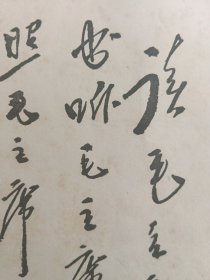 读毛主
书听毛主席
照毛主席